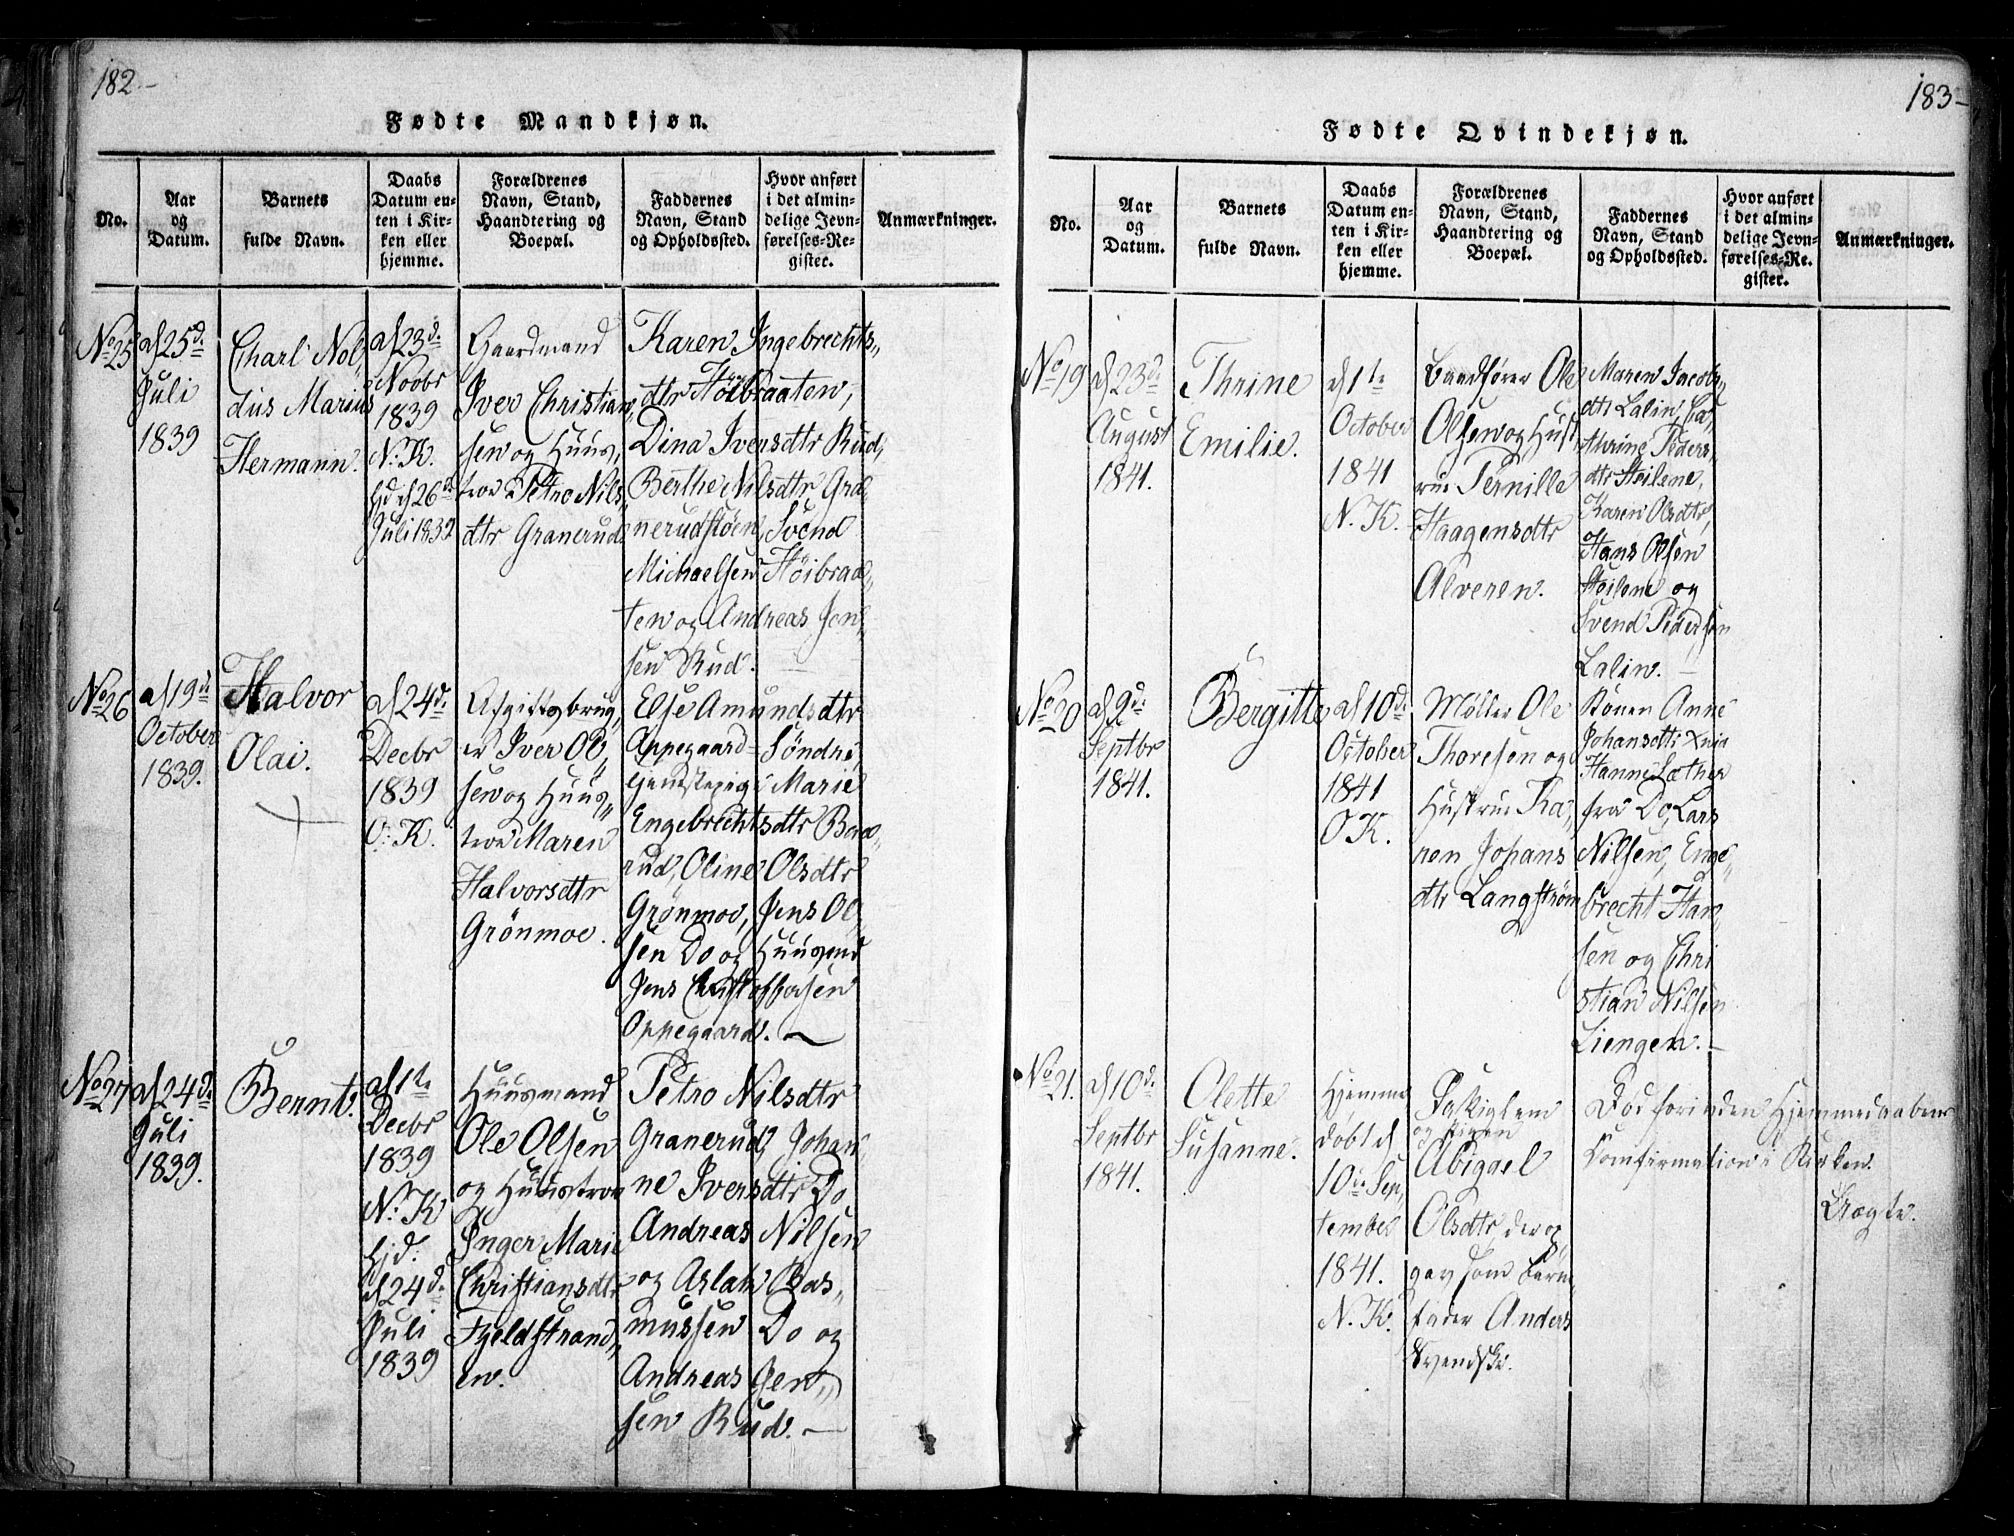 182
Fødte Mandkjøn.
No.
Aar
og
Datum.
Barnets
fulde Navn.
Daabs
Datum en-
ten i Kir-
ken eller
hjemme.
Forældrenes
Navn, Stand,
Haandtering og
Boepæl.
Faddernes
Navn, Stand
og Opholdssted.
Hvor anført
i det almin-
delige Jevn-
førelses-Re-
gister.
Anmærkninger.
No 25
d 25d
Juli
1839
Charl Nol
dus Marius
Hermann.
d 23d
Novbr
1839
N. K.
Hjd d 26d
Juli 1839
Gaardmand
Iver Christian
sen og Huus
troe Petro Nils
dtr Granerud
Karen Ingebrechts
dtr Höibraaten,
Dina Iversdtr Rud,
Berthe Nilsdtr Gra
nerudstöen, Svend
Michaelsen Höibraa
ten og Andreas Jen
sen Rud.
No 26
d 19d
October
1839.
Halvor
Olai.
d 24d
Decbr
1839
O. K.
Afgiftsbrug
er Iver Ol
sen og Huus
troe Maren
Halvorsdtr
Grönmoe.
Else Amundsdtr
Oppegaard Söndre,
Marie
Engebrechtsdtr
rud, Oline Olsdtr
Grönmoe, Jens Ol
sen Do og Huusmd
Jens Christophersen
Oppegaard.
No 27
d 24d
Juli
1839.
Bernt.
d 1te
Decbr
1839
N. K
Hjd.
d 24d
Juli
1839
Huusmand
Ole Olsen
og Huustroe
Inger Marie
Christiansdtr
Fjeldstrand
en.
Petro Nilsdtr
Granerud, Johan
ne Iversdtr Do
Andreas Nilsen
og Aslak Ras
mussen Do og
Andreas Jen
sen Rud.
183
Fødte Qvindekjøn.
No.
Aar
og
Datum.
Barnets
fulde Navn.
Daabs
Datum en-
ten i Kir-
ken eller
hjemme.
Forældrenes
Navn, Stand,
Haandtering og
Boepæl.
Faddernes
Navn, Stand
og Opholdssted.
Hvor anført
i det almin-
delige Jevn-
førelses-Re-
gister.
Anmærkninger.
No 19
d 23d
August
1841.
Thrine
Emilie.
d 1te
October
1841
N. K.
Baadfører Ole
Olsen og Hust
rue Pernille
Haagensdtr
Alveren.
Maren Jacobs
dtr Lalin, Ca
thrine Peders
dtr Steilene,
Karen Olsdtr,
Hans Olsen
Steilene og
Svend Pedersen
Lalin.
No 20
d 9d
Septbr
1841.
Bergitte
d 10d
October
1841
O K.
Møller Ole
Thoresen og
Hustrue Ka
ren Johans
dtr Langström
Konen Anne
Johansdtr
Hanne Sæther
fra Do, Lars
Nilsen, Enge
brecht Han
sen og Chri
stian Nilsen
Liengen.
No 21.
d 10d
Septbr
1841.
Olette
Susanne.
Hjemme
döbt d
10de Sep
tember
1841.
N. K.
og Pigen
Abigael
Olsdtr, der op
gav som Barne
fader Anders
Svendsk.
Död forinden Hjemmedaabens
Comfirmation i Kirken.
Uægte.